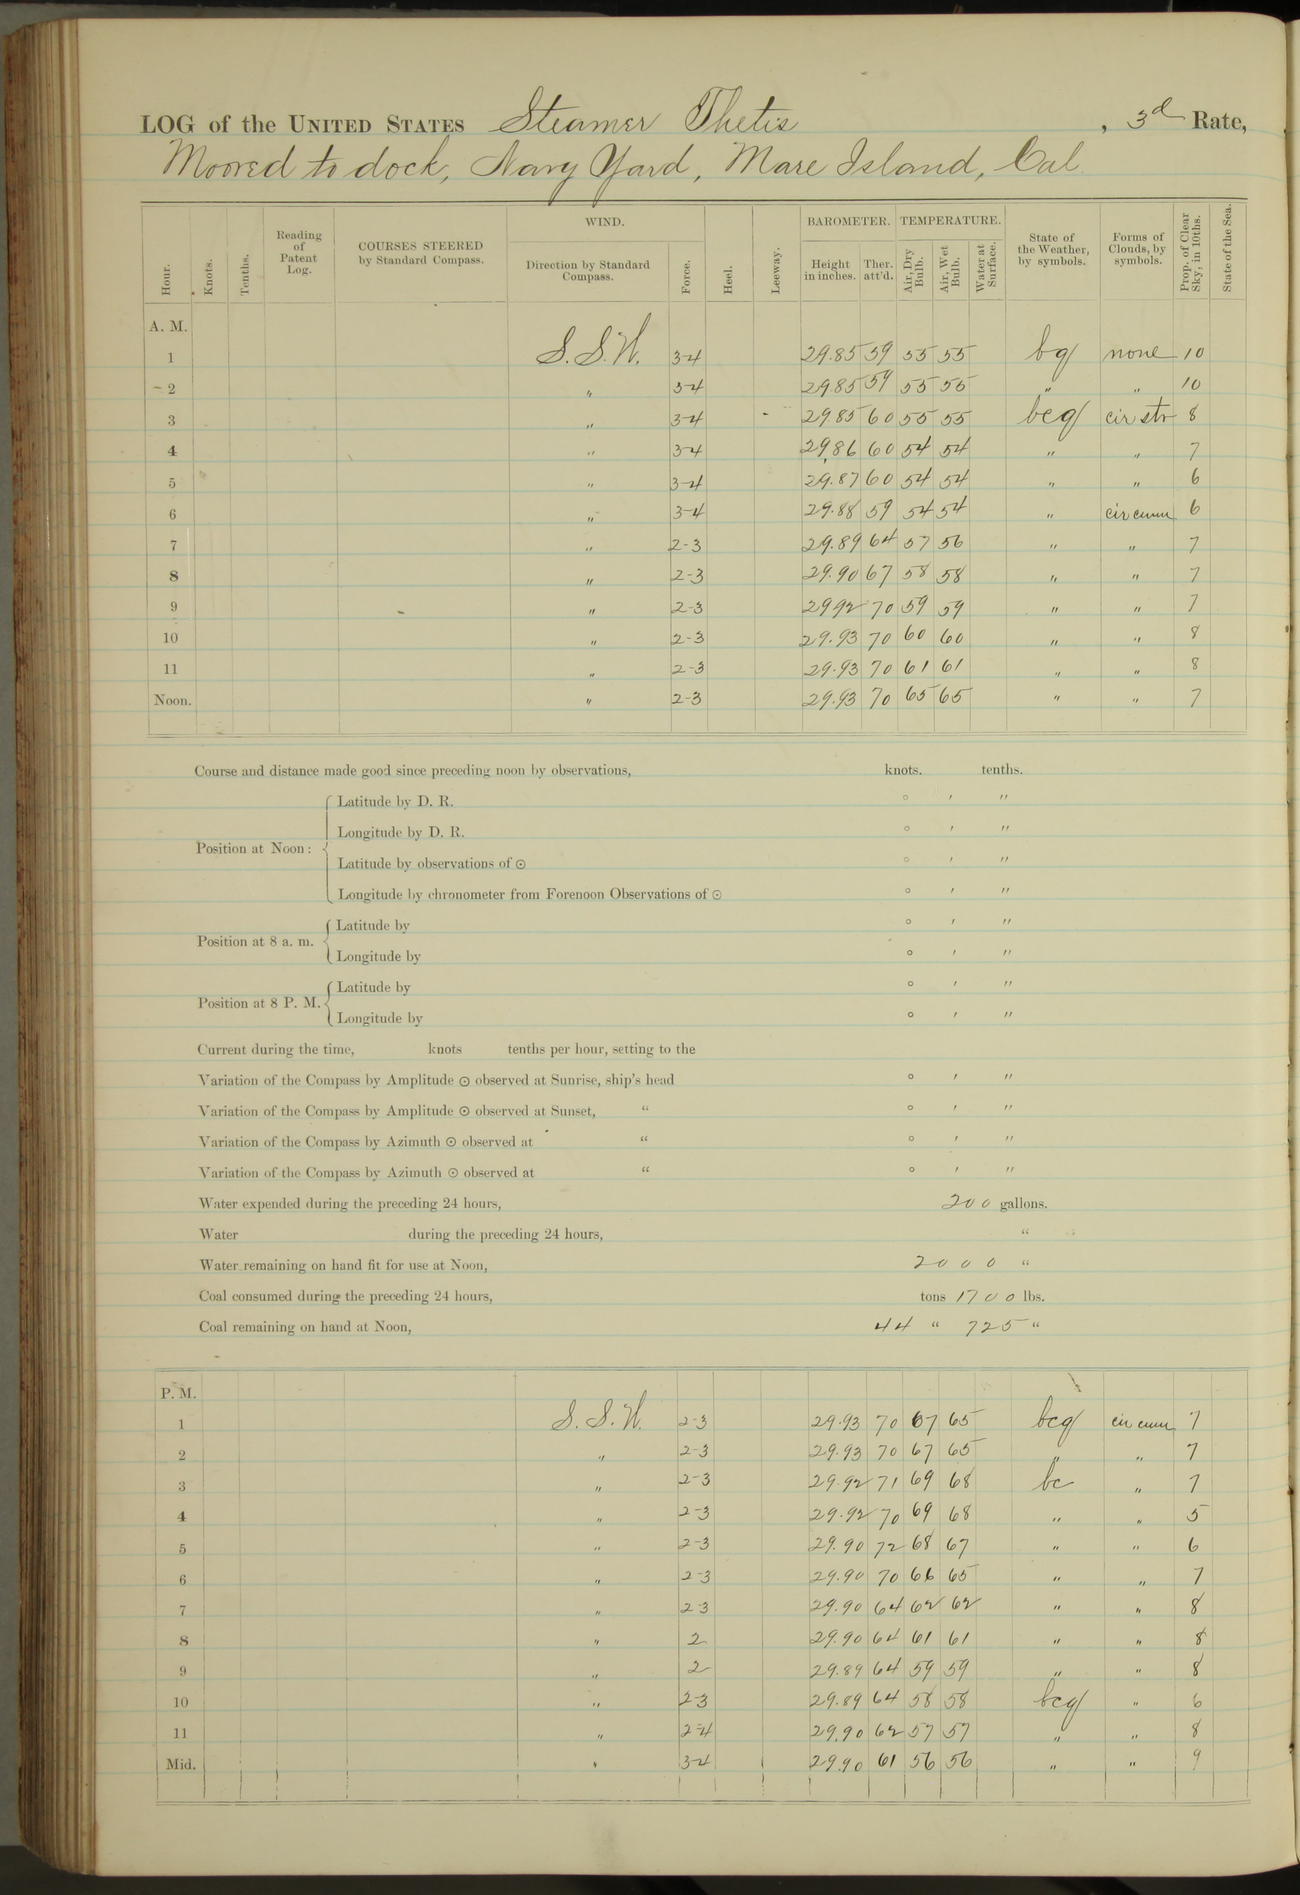 LOG of the UNITED STATES Steamer Thetis, 3d Rate,
Moored to dock, Navy Yard, Mare Island, Cal.
Hour. Knots. Tenths. Reading of Patent Log. COURSES STEERED by Standard Compass. WIND. Direction by Standard Compass. Force. Heel. Leeway. BAROMETER. Height in inches. Ther. att'd. TEMPERATURE. Air, Dry Bulb. Air, Wet Bulb. Water at Surface. State of the Weather, by symbols. Forms of Clouds, by symbols. Prop. of Clear Sky, in 10ths. State of the Sea.
A. M.
1 S.S.W. 3-4 29.85 59 55 55 bq none 10
2 " 3-4 29.85 59 55 55 " " 10
3 " 3-4 29.85 60 55 55 bcq cir str 8
4 " 3-4 29.86 60 54 54 " " 7
5 " 3-4 29.87 60 54 54 " " 6
6 " 3-4 29.88 59 54 54 " cir cum 6
7 " 2-3 29.89 64 57 56 " " 7
8 " 2-3 29.90 67 58 58 " " 7
9 " 2-3 2992 70 59 59 " " 7
10 " 2-3 29.93 70 60 60 " " 8
11 " 2-3 29.93 70 61 61 " " 8
Noon. " 2-3 29.93 70 65 65 " " 7
Course and distance made good since preceding noon by observations, knots. tenths.
Position at Noon: Latitude by D. R. ° ′ ″
Longitude by D. R. ° ′ ″
Latitude by observations of ☉ ° ′ ″
Longitude by chronometer from Forenoon Observations of ☉ ° ′ ″
Position at 8 a. m. Latitude by ° ′ ″
Longitude by ° ′ ″
Position at 8 P. M. Latitude by ° ′ ″
Longitude by ° ′ ″
Current during the time, knots tenths per hour, setting to the
Variation of the Compass by Amplitude ☉ observed at Sunrise, ship's head ° ′ ″
Variation of the Compass by Amplitude ☉ observed at Sunset, " ° ′ ″
Variation of the Compass by Azimuth ☉ observed at " ° ′ ″
Variation of the Compass by Azimuth ☉ observed at " ° ′ ″
Water expended during the preceding 24 hours, 200 gallons.
Water during the preceding 24 hours, "
Water remaining on hand fit for use at Noon, 2000 "
Coal consumed during the preceding 24 hours, tons 1700 lbs.
Coal remaining on hand at Noon, 44 " 725 "
P. M.
1 S.S.W. 2-3 29.93 70 67 65 bcq cir cum 7
2 " 2-3 29.93 70 67 65 " " 7
3 " 2-3 29.92 71 69 68 bc " 7
4 " 2-3 29.92 70 69 68 " " 5
5 " 2-3 29.90 72 68 67 " " 6
6 " 2-3 29.90 70 66 65 " " 7
7 " 2-3 29.90 64 62 62 " " 8
8 " 2 29.90 64 61 61 " " 8
9 " 2 29.89 64 59 59 " " 8
10 " 2-3 29.89 64 58 58 bcq " 6
11 " 2-4 29.90 62 57 57 " " 8
Mid. " 3-4 29.90 61 56 56 " " 9